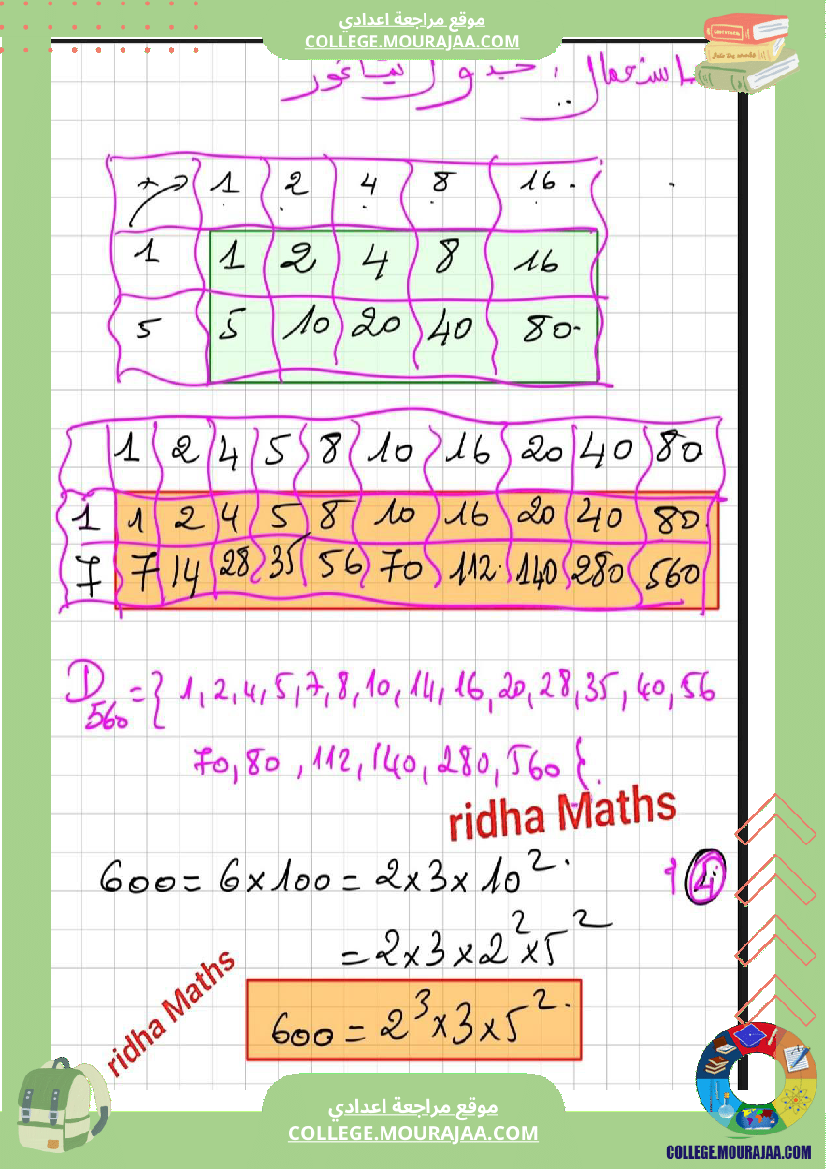 موقع مراجعة اعدادي
COLLEGE.MOURAJAA.COM
باستعمال جدول فيثاغور
× 1 2 4 8 16
1 1 2 4 8 16
5 5 10 20 40 80
1 2 4 5 8 10 16 20 40 80
1 1 2 4 5 8 10 16 20 40 80
7 7 14 28 35 56 70 112 140 280 560
D560 = { 1, 2, 4, 5, 7, 8, 10, 14, 16, 20, 28, 35, 40, 56
70, 80, 112, 140, 280, 560 }.
ridha Maths
600 = 6 × 100 = 2 × 3 × 10².
= 2 × 3 × 2² × 5²
ridha Maths
600 = 2³ × 3 × 5².
موقع مراجعة اعدادي
COLLEGE.MOURAJAA.COM
COLLEGE.MOURAJAA.COM